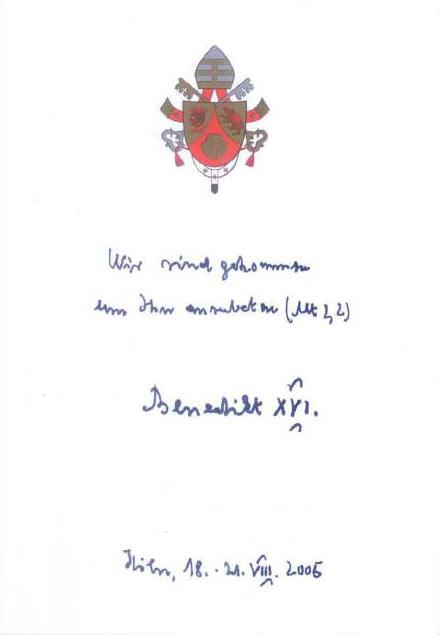 Wir sind gekommen
um Ihn anzubeten (Mt 2,2)
Benedikt XVI.
Köln, 18. - 21. VIII. 2005